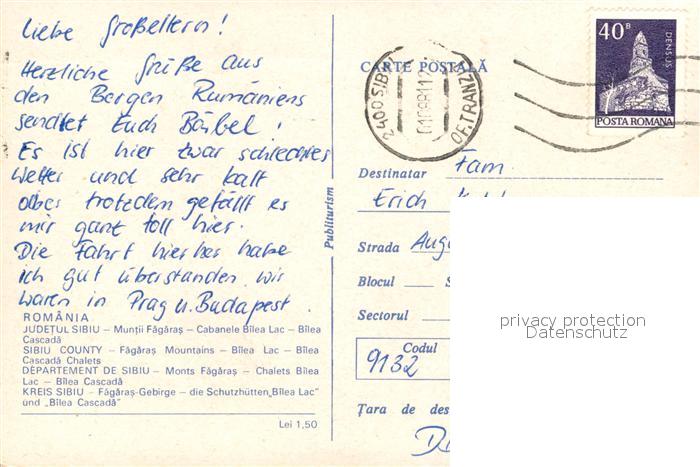 Liebe Großeltern!
Herzliche Grüße aus
den Bergen Rumäniens
sendet Euch Bärbel!
Es ist hier zwar schlechtes
Wetter und sehr kalt
aber trotzdem gefällt es
mir ganz toll hier.
Die Fahrt hierher habe
ich gut überstanden, wir
waren in Prag u. Budapest.
ROMÂNIA
JUDEŢUL SIBIU – Munţii Făgăraş – Cabanele Bîlea Lac – Bîlea
Cascadă
SIBIU COUNTY – Făgăraş Mountains – Bîlea Lac – Bîlea
Cascadă Chalets
DÉPARTEMENT DE SIBIU – Monts Făgăraş – Chalets Bîlea
Lac – Bîlea Cascadă
KREIS SIBIU – Făgăraş-Gebirge – die Schutzhütten „Bîlea Lac"
und „Bîlea Cascadă"
Lei 1,50
Publiturism
CARTE POŞTALĂ
2400 SIBIU
OF. TRANZIT
40 B
DENSUS
POSTA ROMANA
Destinatar Fam.
Erich
Strada
Blocul
Sectorul
Codul
9132
Ţara de des
privacy protection
Datenschutz